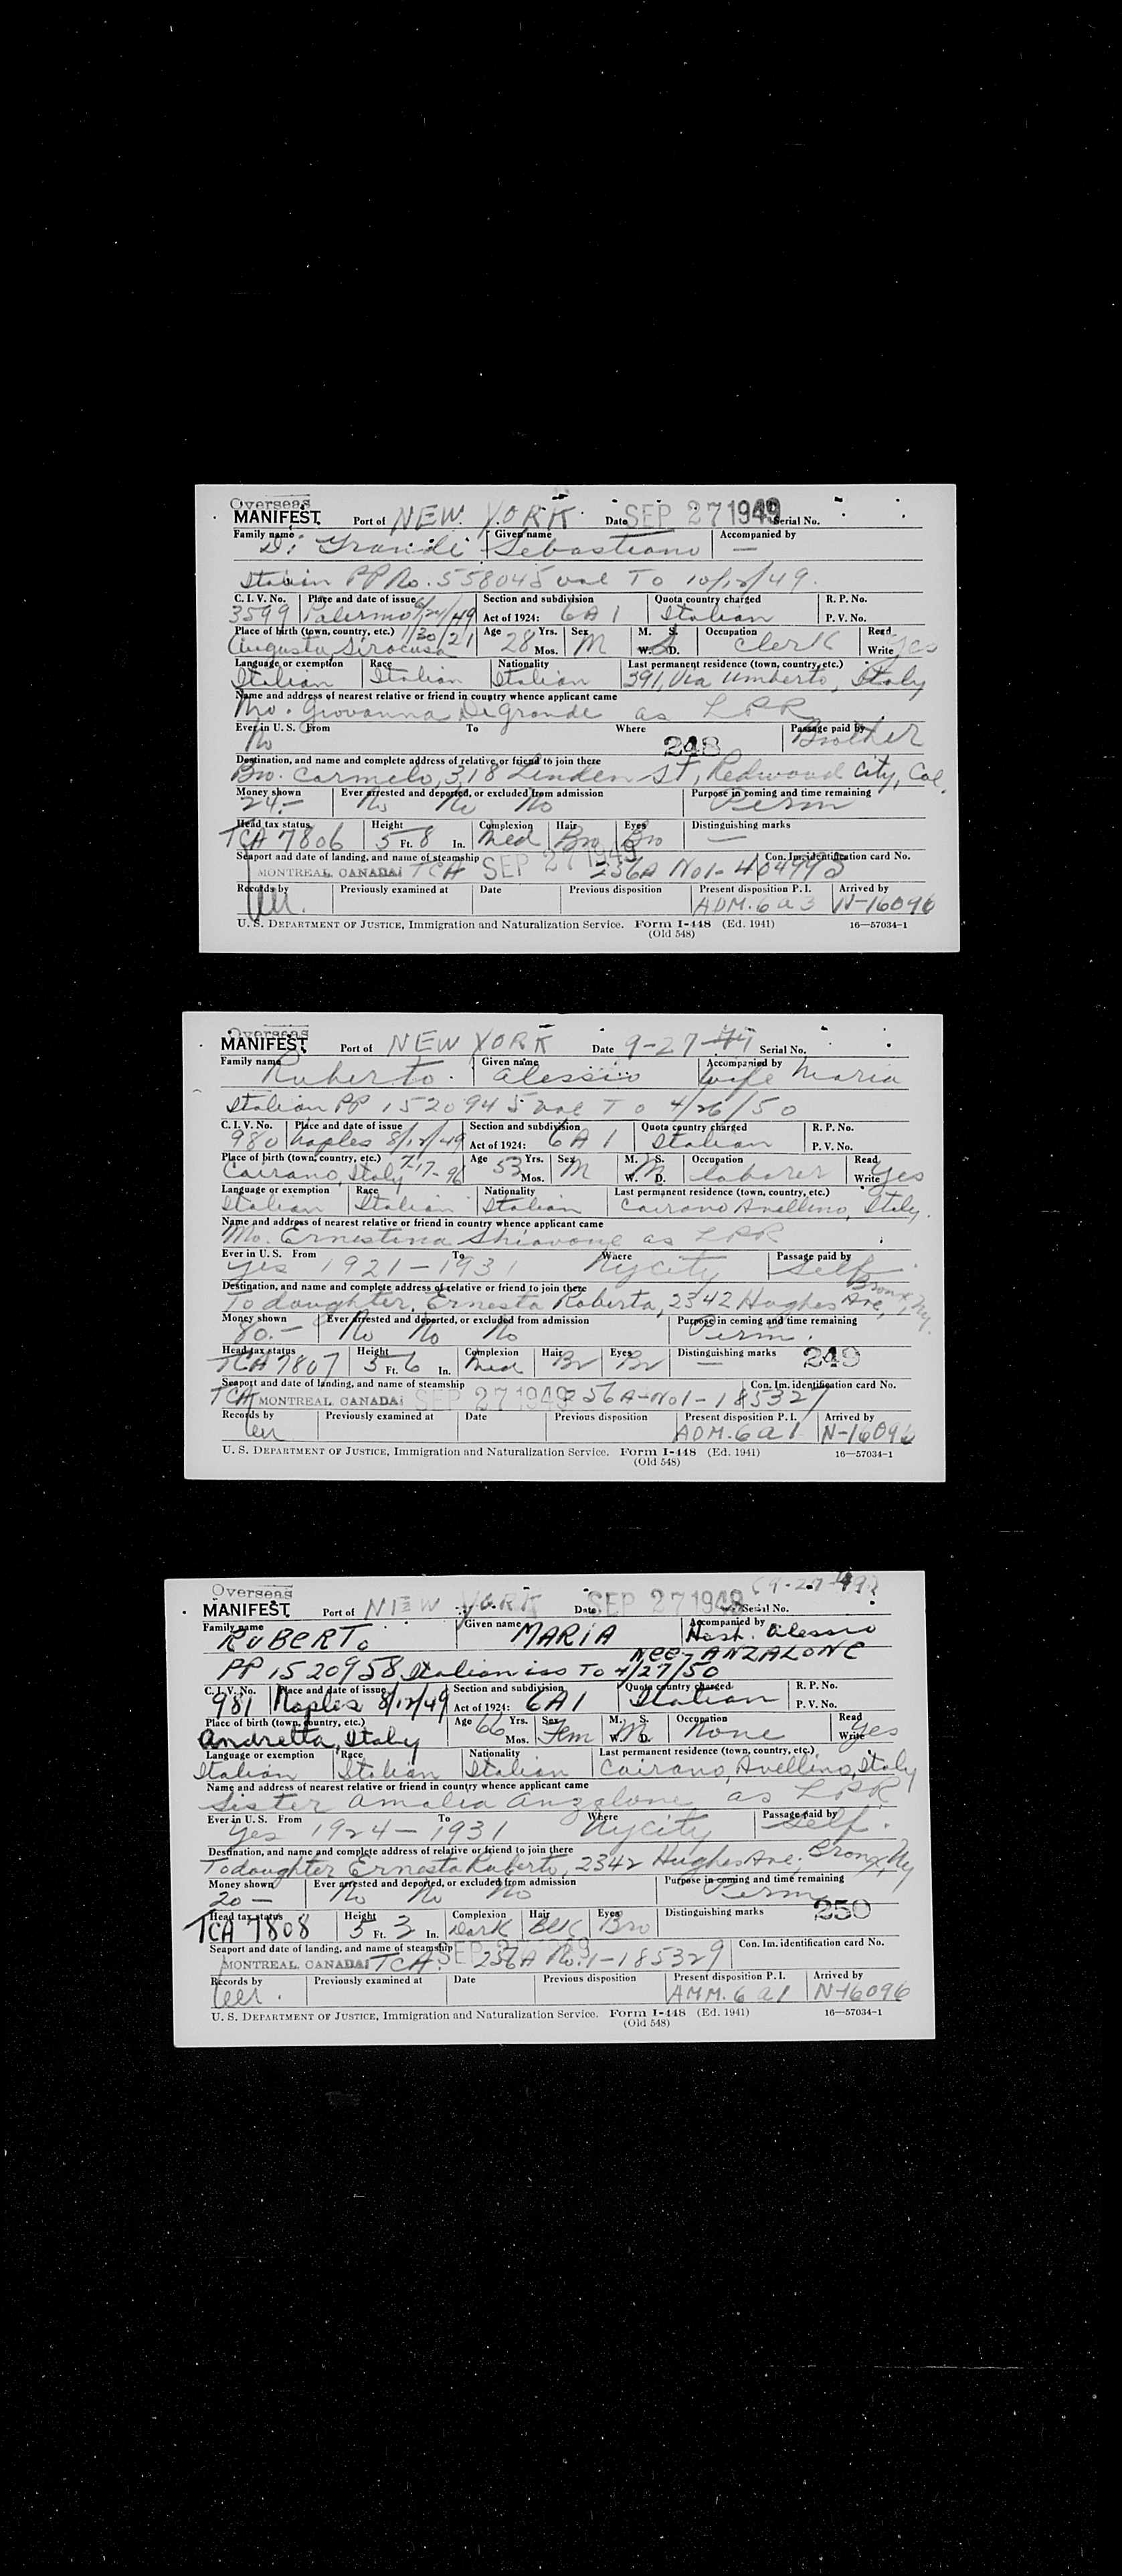 Overseas
MANIFEST Port of NEW YORK Date SEP 27 1949 Serial No.
Family name Di Grandi Given name Sebastiano Accompanied by —
Italian PP No. 558045 val To 10/12/49.
C. I. V. No. Place and date of issue Section and subdivision Quota country charged R. P. No.
3599 Palermo 6/24/49 Act of 1924: 6A1 Italian P. V. No.
Place of birth (town, country, etc.) 1/30/21 Age 28 Yrs. Sex M M. S. Occupation Clerk Read Yes
Augusta, Siracusa Mos. W. D. Write
Language or exemption Race Nationality Last permanent residence (town, country, etc.)
Italian Italian Italian 391, Via Umberto, Italy
Name and address of nearest relative or friend in country whence applicant came
Mo. Giovanna Di Grande as LPR
Ever in U. S. From To Where Passage paid by
No 248 Brother
Destination, and name and complete address of relative or friend to join there
Bro. Carmelo, 318 Linden St, Redwood City, Cal.
Money shown Ever arrested and deported, or excluded from admission Purpose in coming and time remaining
24.— No No No Perm
Head tax status Height Complexion Hair Eyes Distinguishing marks
TCA 7806 5 Ft. 8 In. Med Bro Bro —
Seaport and date of landing, and name of steamship Con. Im. identification card No.
MONTREAL, CANADA TCA SEP 27 1949 256A No1-
Records by Previously examined at Date Previous disposition Present disposition P. I. Arrived by
ADM. 6a3 N-16096
U. S. DEPARTMENT OF JUSTICE, Immigration and Naturalization Service. Form I-448 (Ed. 1941) 16—57034-1
(Old 548)
Overseas
MANIFEST Port of NEW YORK Date 9-27- Serial No.
Family name Ruberto Given name Alessio Accompanied by Wife Maria
Italian PP 1520945 val To 4/26/50
C. I. V. No. Place and date of issue Section and subdivision Quota country charged R. P. No.
980 Naples 8/12/49 Act of 1924: 6A1 Italian P. V. No.
Place of birth (town, country, etc.) 7-17-96 Age 53 Yrs. Sex M M. S. Occupation laborer Read Yes
Cairano, Italy Mos. W. D. Write
Language or exemption Race Nationality Last permanent residence (town, country, etc.)
Italian Italian Italian Cairano Avellino, Italy.
Name and address of nearest relative or friend in country whence applicant came
Mo. Ernestina Schiavone as LPR
Ever in U. S. From To Where Passage paid by
Yes 1921 — 1931 Ny City Self
Destination, and name and complete address of relative or friend to join there
To daughter, Ernesta Roberta, 2342 Hughes Ave, Bronx, Ny.
Money shown Ever arrested and deported, or excluded from admission Purpose in coming and time remaining
80.— No No No Perm.
Head tax status Height Complexion Hair Eyes Distinguishing marks 249
TCA 7807 5 Ft. 6 In. Med Br Br —
Seaport and date of landing, and name of steamship Con. Im. identification card No.
TCA MONTREAL, CANADA SEP 27 1949 256A-No1-185327
Records by Previously examined at Date Previous disposition Present disposition P. I. Arrived by
ADM. 6a1 N-16096
U. S. DEPARTMENT OF JUSTICE, Immigration and Naturalization Service. Form I-448 (Ed. 1941) 16—57034-1
(Old 548)
Overseas (9-27-49)
MANIFEST Port of NEW YORK Date SEP 27 1949 Serial No.
Family name RUBERTO Given name MARIA Accompanied by Hush. Alessio
nee-ANZALONE
PP 1520958 Italian iss To 4/27/50
C. I. V. No. Place and date of issue Section and subdivision Quota country charged R. P. No.
981 Naples 8/12/49 Act of 1924: 6A1 Italian P. V. No.
Place of birth (town, country, etc.) Age 66 Yrs. Sex Fem M. S. Occupation None Read Yes
Andretta, Italy Mos. W. D. Write
Language or exemption Race Nationality Last permanent residence (town, country, etc.)
Italian Italian Italian Cairano, Avellino, Italy
Name and address of nearest relative or friend in country whence applicant came
Sister Amalia Anzalone as LPR
Ever in U. S. From To Where Passage paid by
Yes 1924 — 1931 Ny City Self.
Destination, and name and complete address of relative or friend to join there
To daughter Ernesta Ruberto, 2342 Hughes Ave, Bronx, Ny
Money shown Ever arrested and deported, or excluded from admission Purpose in coming and time remaining
20— No No No Perm
Head tax status Height Complexion Hair Eyes Distinguishing marks 250
TCA 7808 5 Ft. 3 In. Dark Blk Bro
Seaport and date of landing, and name of steamship Con. Im. identification card No.
MONTREAL, CANADA TCA. SEP 27 1949 256A No.1-185329
Records by Previously examined at Date Previous disposition Present disposition P. I. Arrived by
AMM. 6 a1 N-16096
U. S. DEPARTMENT OF JUSTICE, Immigration and Naturalization Service. Form I-448 (Ed. 1941) 16—57034-1
(Old 548)